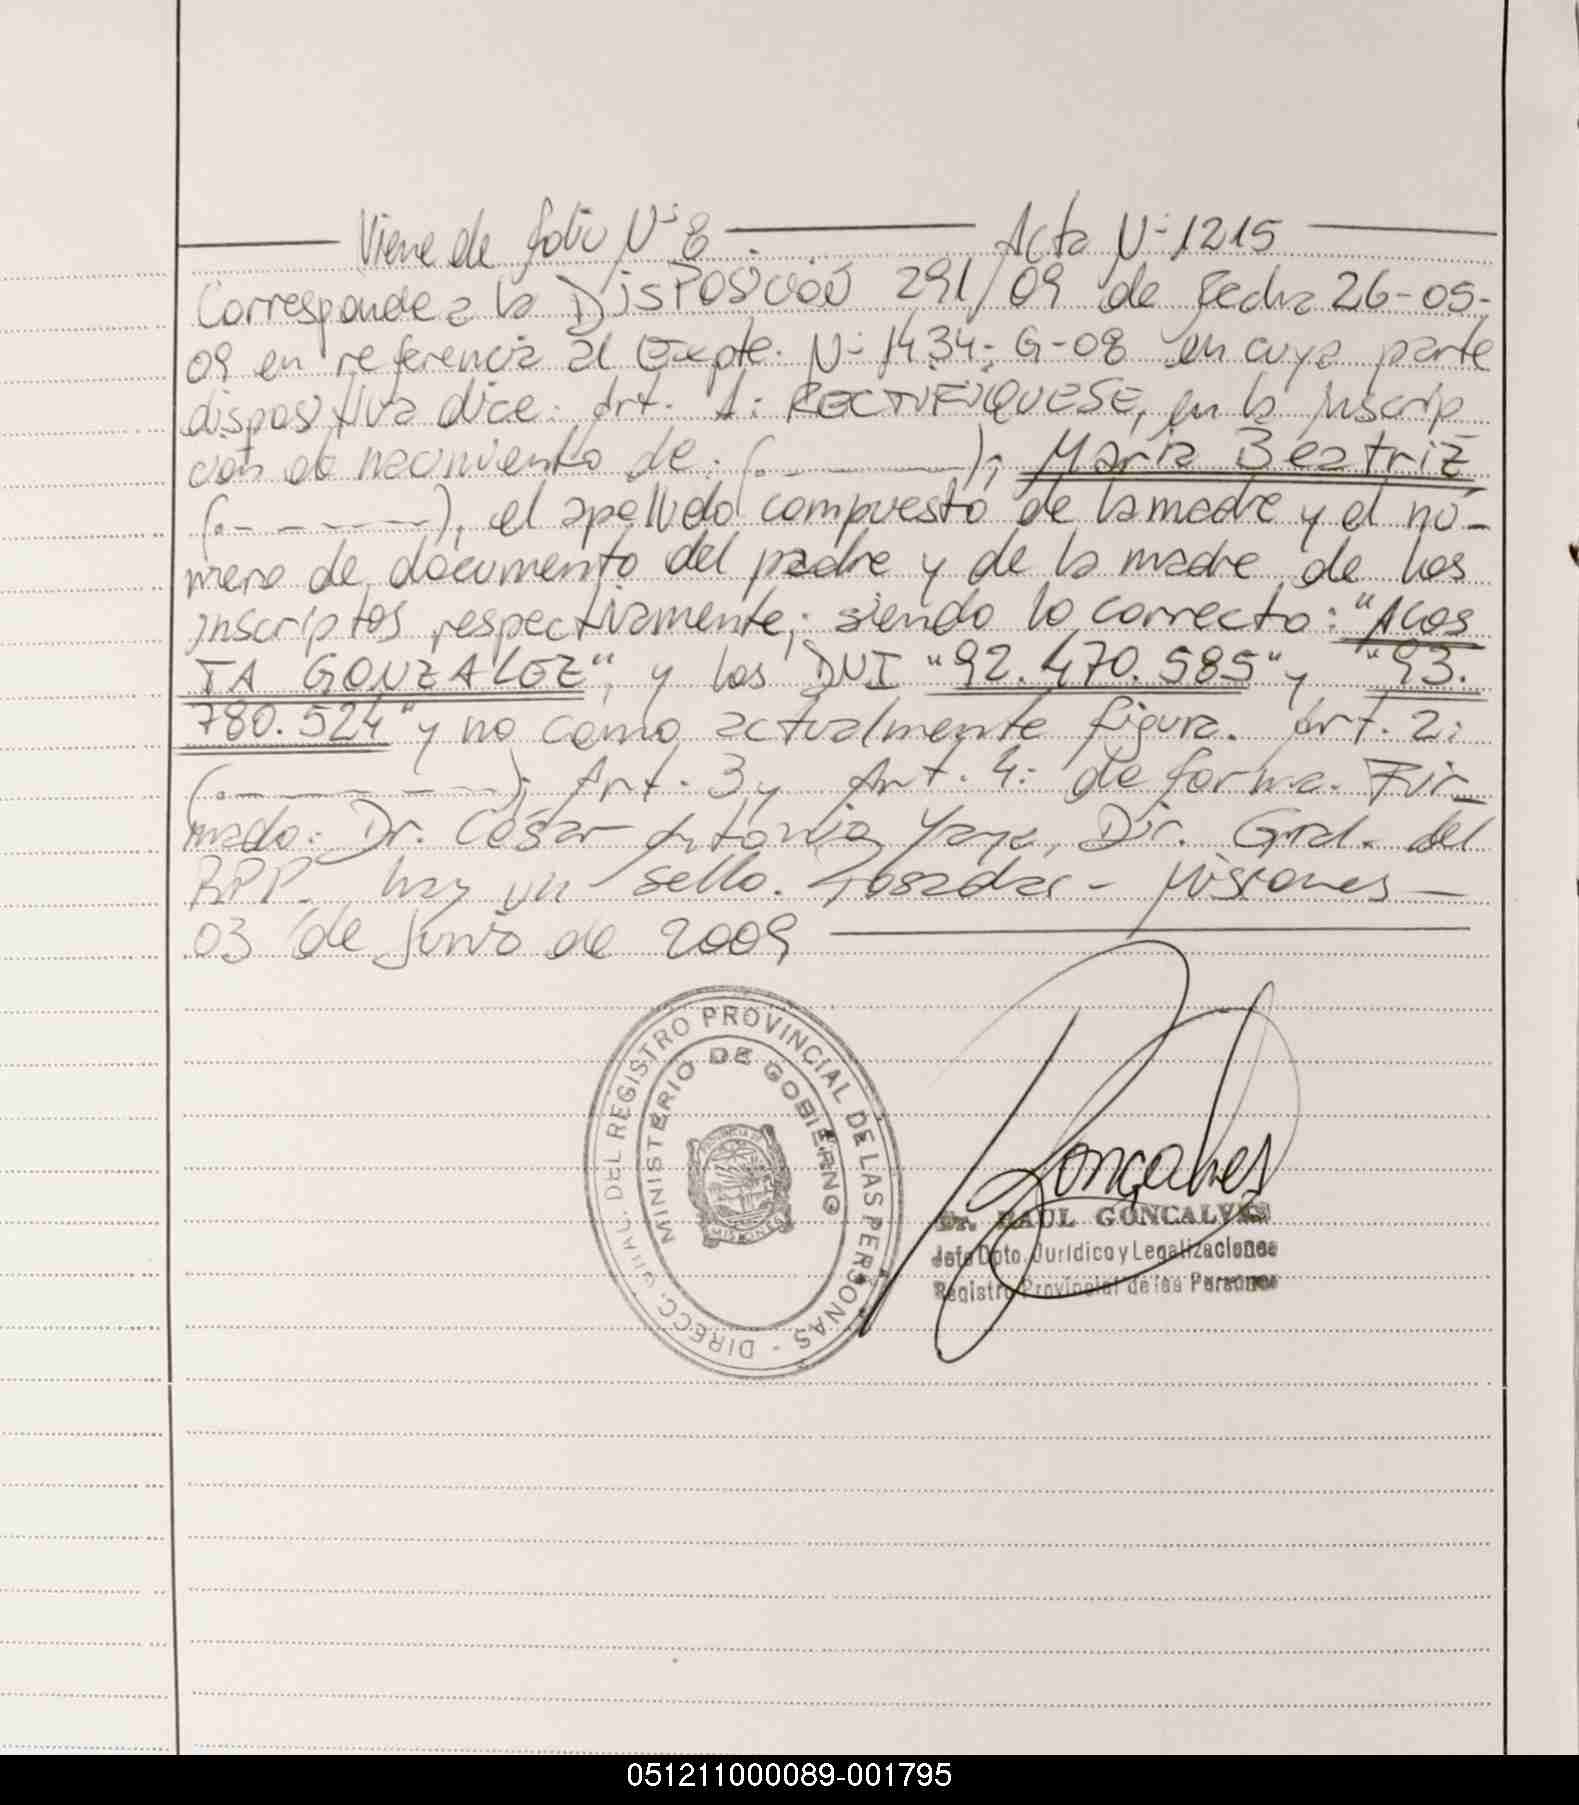 Viene de folio Nº 8 Acta Nº 1215
Corresponde a la DISPOSICIÓN 291/09 de fecha 26-05-
09 en referencia al Expte. Nº 1434-G-08 en cuya parte
dispositiva dice: Art. 1: RECTIFIQUESE, en la inscrip
ción de nacimiento de: (.- - - -); María Beatriz
(.- - - - -), el apellido compuesto de la madre y el nú-
mero de documento del padre y de la madre de los
inscriptos respectivamente; siendo lo correcto: "ACOS
TA GONZALEZ", y los DNI "92.470.585" y "93.
780.524" y no como actualmente figura. Art. 2:
(.- - - - -); Art. 3 y Art. 4: de forma. Fir-
mado: Dr. César Antonio Yaya, Dir. Gral. del
RPP. hay un sello. Posadas - Misiones -
03 de Junio de 2009
DIRECC. GRAL. DEL REGISTRO PROVINCIAL DE LAS PERSONAS -
MINISTERIO DE GOBIERNO
PROVINCIA DE
MISIONES
Gonçalves
Dr. RAUL GONCALVES
Jefe Dpto. Jurídico y Legalizaciones
Registro Provincial de las Personas
051211000089-001795